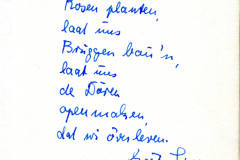 Rosen planten,
laat uns
Brüggen bau'n,
laat uns
de Dören
apen maken,
dat wi överleven.